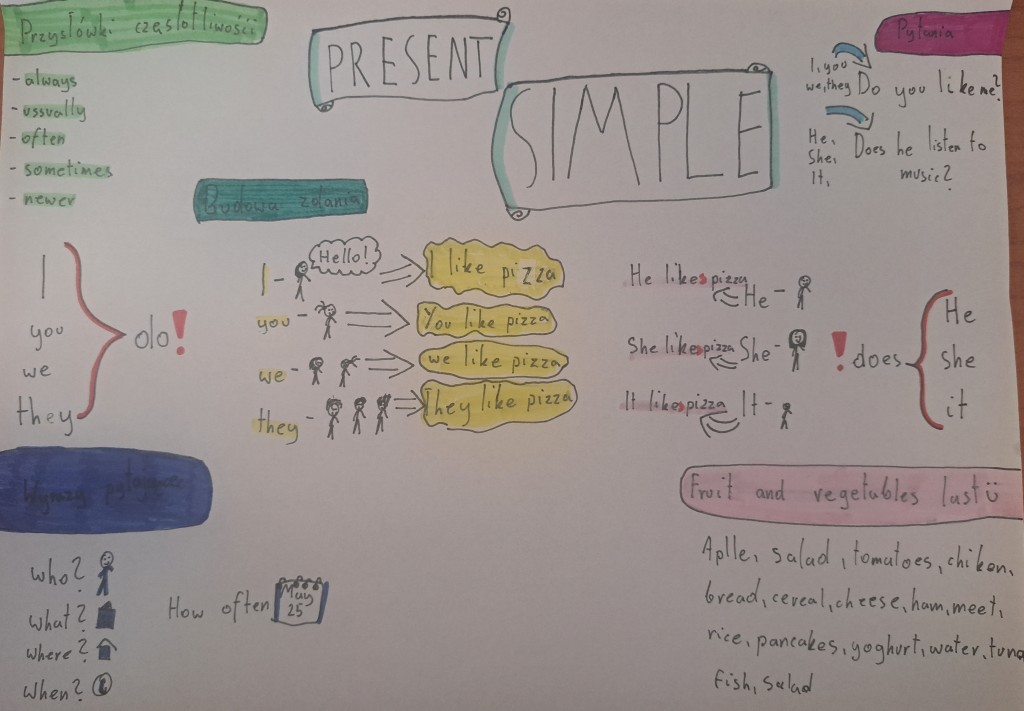 Przysłówki częstotliwości
- always
- ussually
- often
- sometimes
- newer
PRESENT
SIMPLE
Pytania
I, you
we, they Do you like me?
He,
She,
It,
Does he listen to
music?
Budowa zdania
I
you
we
they
do!
I - Hello! I like pizza
you - You like pizza
we - we like pizza
they - They like pizza
He likes pizza
He -
She likes pizza She -
It likes pizza It -
! does
He
she
it
Wyrazy pytające
who?
what?
where?
when?
How often May
25
Fruit and vegetables
Aplle, salad, tomatoes, chiken,
bread, cereal, cheese, ham, meet,
rice, pancakes, yoghurt, water, tuna
fish, salad